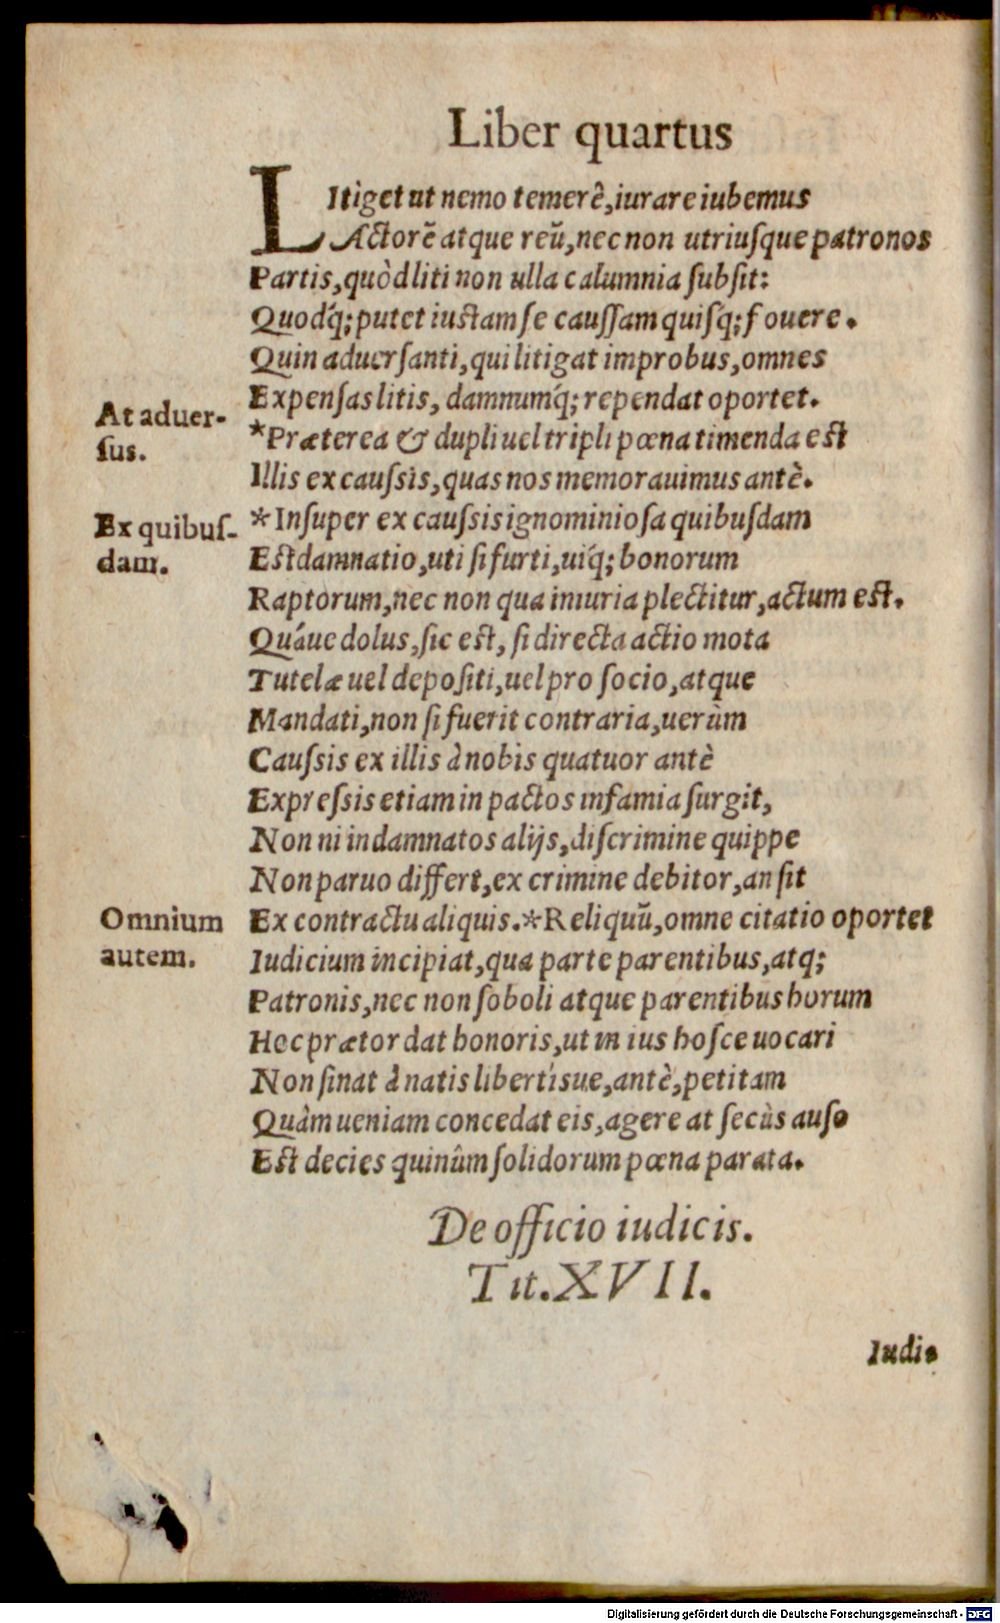 Liber quartus
LItiget ut nemo temerè, iurare iubemus
Actorē atque reū, nec non utriusque patronos
Partis, quòd liti non ulla calumnia subsit:
Quodq́; putet iustam se caussam quisq́; fouere.
Quin aduersanti, qui litigat improbus, omnes
Expensas litis, damnumq́; rependat oportet.
At aduer-
sus.
*Præterea & dupli uel tripli pœna timenda est
Illis ex caussis, quas nos memorauimus antè.
Ex quibus-
dam.
*Insuper ex caussis ignominiosa quibusdam
Est damnatio, uti si furti, uiq́; bonorum
Raptorum, nec non qua iniuria plectitur, actum est.
Quáue dolus, sic est, si directa actio mota
Tutelæ uel depositi, uel pro socio, atque
Mandati, non si fuerit contraria, uerùm
Caussis ex illis à nobis quatuor antè
Expressis etiam in pactos infamia surgit,
Non ni in damnatos alijs, discrimine quippe
Non paruo differt, ex crimine debitor, an sit
Omnium
autem.
Ex contractu aliquis.*Reliquū, omne citatio oportet
Iudicium incipiat, qua parte parentibus, atq;
Patronis, nec non soboli atque parentibus horum
Hoc prætor dat honoris, ut in ius hosce uocari
Non sinat à natis libertísue, antè, petitam
Quàm ueniam concedat eis, agere at secùs auso
Est decies quinûm solidorum pœna parata.
De officio iudicis.
Tit. XVII.
Iudi-
Digitalisierung gefördert durch die Deutsche Forschungsgemeinschaft - DFG